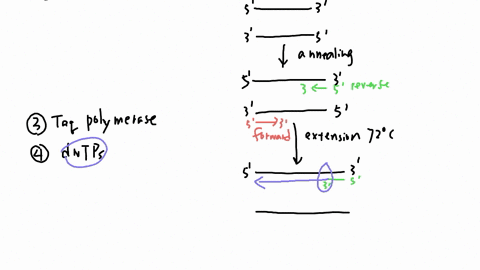 5' 3'
3' 5'
annealing
5' 3'
3 ← 5' reverse
3' 5'
5' → 3'
forward
extension 72°C
③ Taq polymerase
④ dNTPs
5' 3'
3' 5'